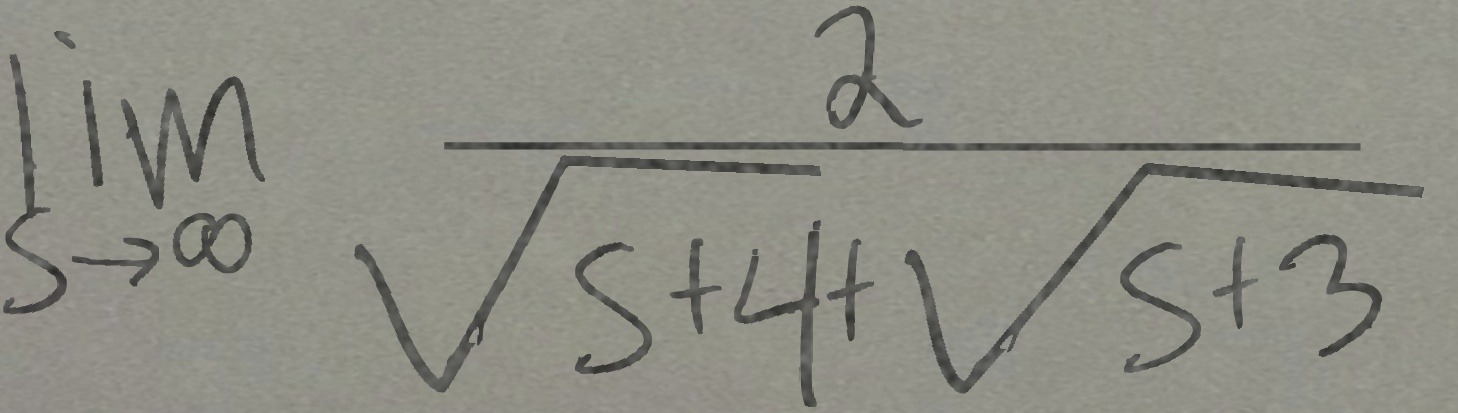 \lim_{s \to \infty} \frac{2}{\sqrt{s+4}+\sqrt{s+3}}